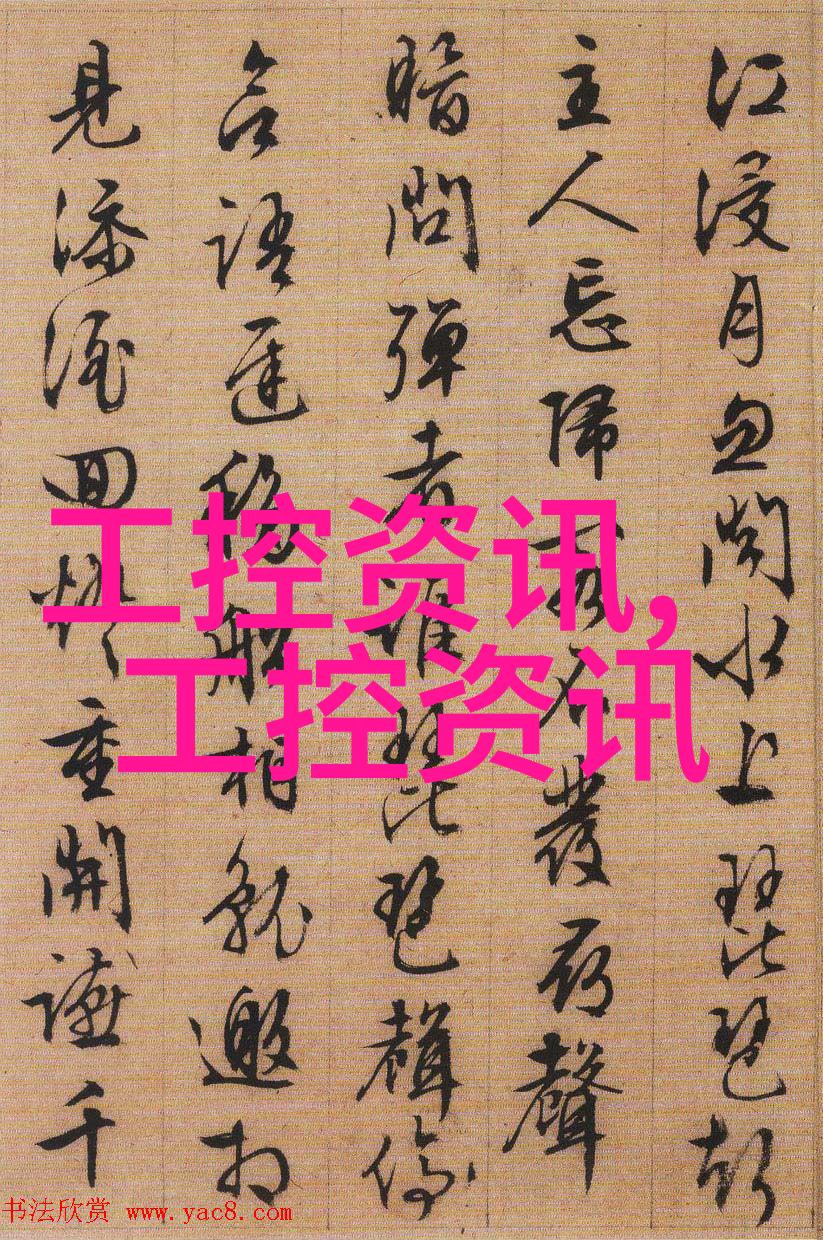 江浸月忽聞水上琵琶聲
主人忘歸客不發尋聲
暗問彈者誰琵琶聲停
欲語遲移船相就邀相
見添酒回燈重開讌千
工控资讯,
工控资讯
书法欣赏 www.yac8.com